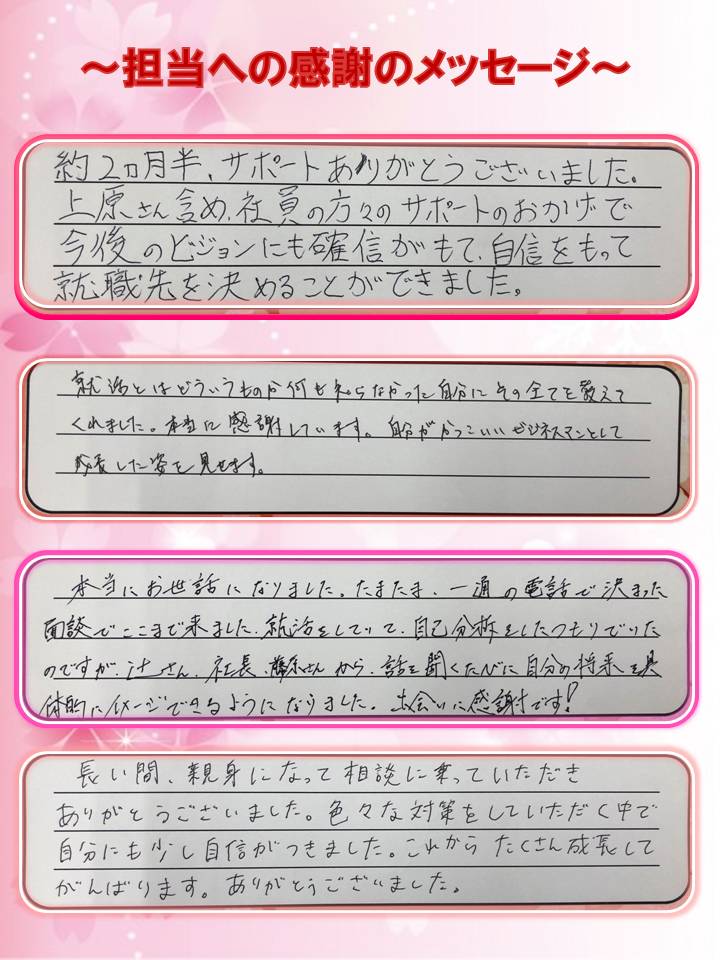 ～担当への感謝のメッセージ～
約2ヵ月半、サポートありがとうございました。
上原さん含め、社員の方々のサポートのおかげで
今後のビジョンにも確信がもて、自信をもって
就職先を決めることができました。
就活とはどういうものか何も知らなかった自分にその全てを教えて
くれました。本当に感謝しています。自分がかっこいいビジネスマンとして
成長した姿を見せます。
本当にお世話になりました。たまたま、一通の電話で決まった
面談でここまで来ました。就活をしていて、自己分析をしたつもりでいた
のですが、辻さん、社長、藤原さんから、話を聞くたびに自分の将来を具
体的にイメージできるようになりました。出会いに感謝です!
長い間、親身になって相談に乗っていただき
ありがとうございました。色々な対策をしていただく中で
自分にも少し自信がつきました。これから たくさん成長して
がんばります。ありがとうございました。